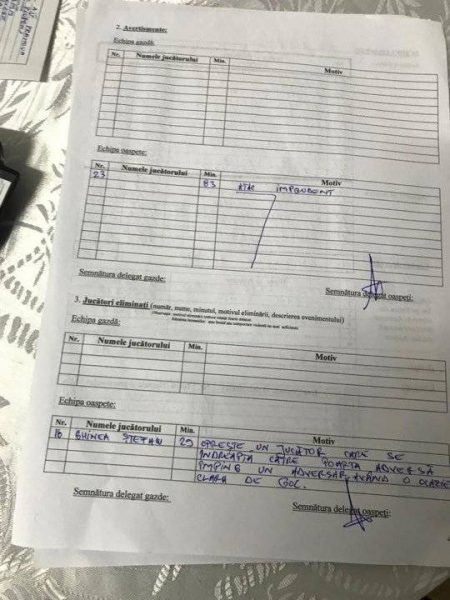 2. Avertismente:
Echipa gazdă:
Nr. Numele jucătorului Min. Motiv
Echipa oaspete:
Nr. Numele jucătorului Min. Motiv
23 83 IMPRUDENT
Semnătura delegat gazde: Semnătura delegat oaspeți:
3. Jucători eliminați (număr, nume, minutul, motivul eliminării, descrierea evenimentului)
Echipa gazdă:
Nr. Numele jucătorului Min. Motiv
Echipa oaspete:
Nr. Numele jucătorului Min. Motiv
16 GHINEA ȘTEFAN 29 OPREȘTE UN JUCĂTOR CARE SE
ÎNDREAPTĂ CĂTRE POARTA ADVERSĂ
ÎMPING UN ADVERSAR AVÂND O OCAZIE
CLARĂ DE GOL.
Semnătura delegat gazde: Semnătura delegat oaspeți: